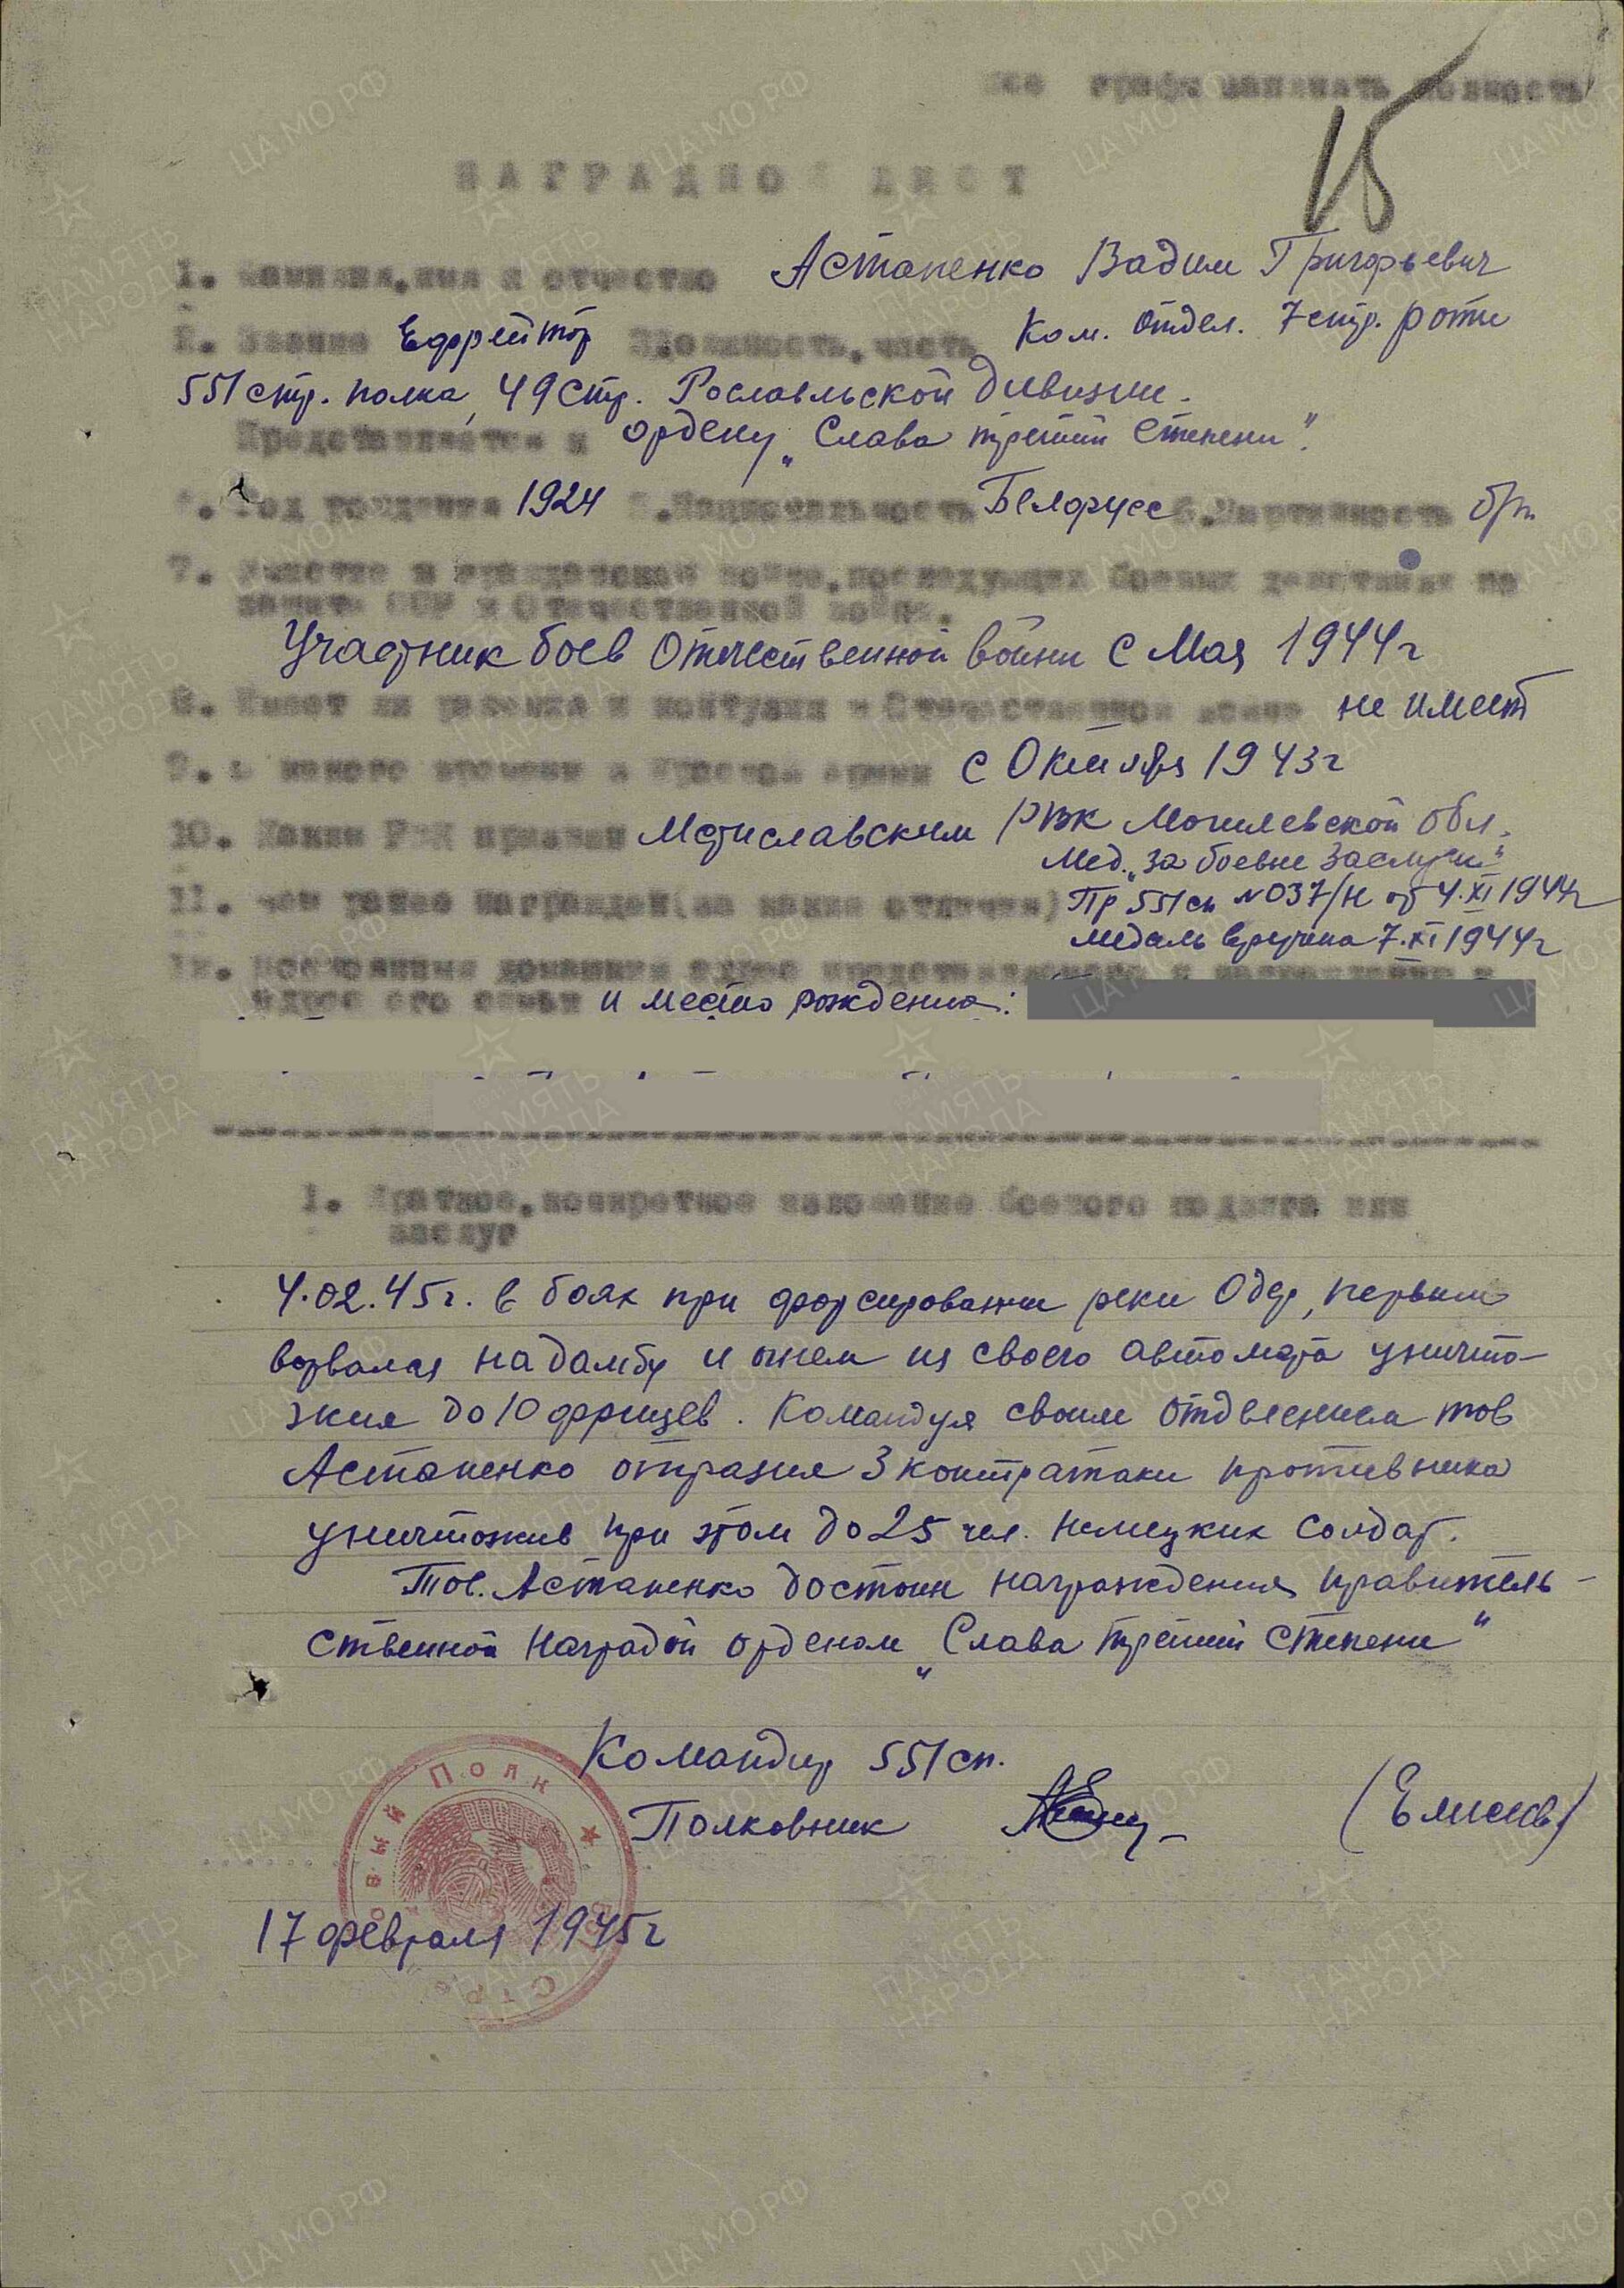 Все графы заполнять полностью
15
НАГРАДНОЙ ЛИСТ
1. Фамилия, имя и отчество Астапенко Вадим Григорьевич
2. Звание Ефрейтор 3. Должность, часть Ком. отдел. 7 стр. роти
551 стр. полка, 49 стр. Рославльской дивизии.
Представляется к ордену „Слава третий степени".
4. Год рождения 1924 5. Национальность Белорусс 6. Партийность б/п
7. Участие в гражданской войне, последующих боевых действиях по
защите СССР и Отечественной войне.
Участник боев Отечественной войни с Мая 1944г
8. Имеет ли ранения и контузии в Отечественной войне не имеет
9. С какого времени в Красной армии с Октября 1943г
10. Каким РВК призван Мстиславским РВК Могилевской обл.
Мед. „За боевые заслуги"
11. Чем ранее награжден (за какие отличия) Пр 551 сп №037/н от 4.XI 1944г
медаль вручена 7.XI 1944г
12. Постоянный домашний адрес представляемого к награждению и
адрес его семьи и место рождения:
1. Краткое, конкретное изложение боевого подвига или
заслуг
4.02.45г. в боях при форсировании реки Одер, первым
ворвался на дамбу и огнем из своего автомата уничто-
жил до 10 фрицев. Командуя своим отделением тов
Астапенко отразил 3 контратаки противника
уничтожив при этом до 25 чел. немецких солдат.
Тов. Астапенко достоин награждения правитель-
ственной наградой орденом „Слава третий степени"
Командир 551 сп.
Полковник (Елисеев)
17 февраля 1945г
Стрелковый Полк
ПАМЯТЬ НАРОДА
ЦА МО РФ